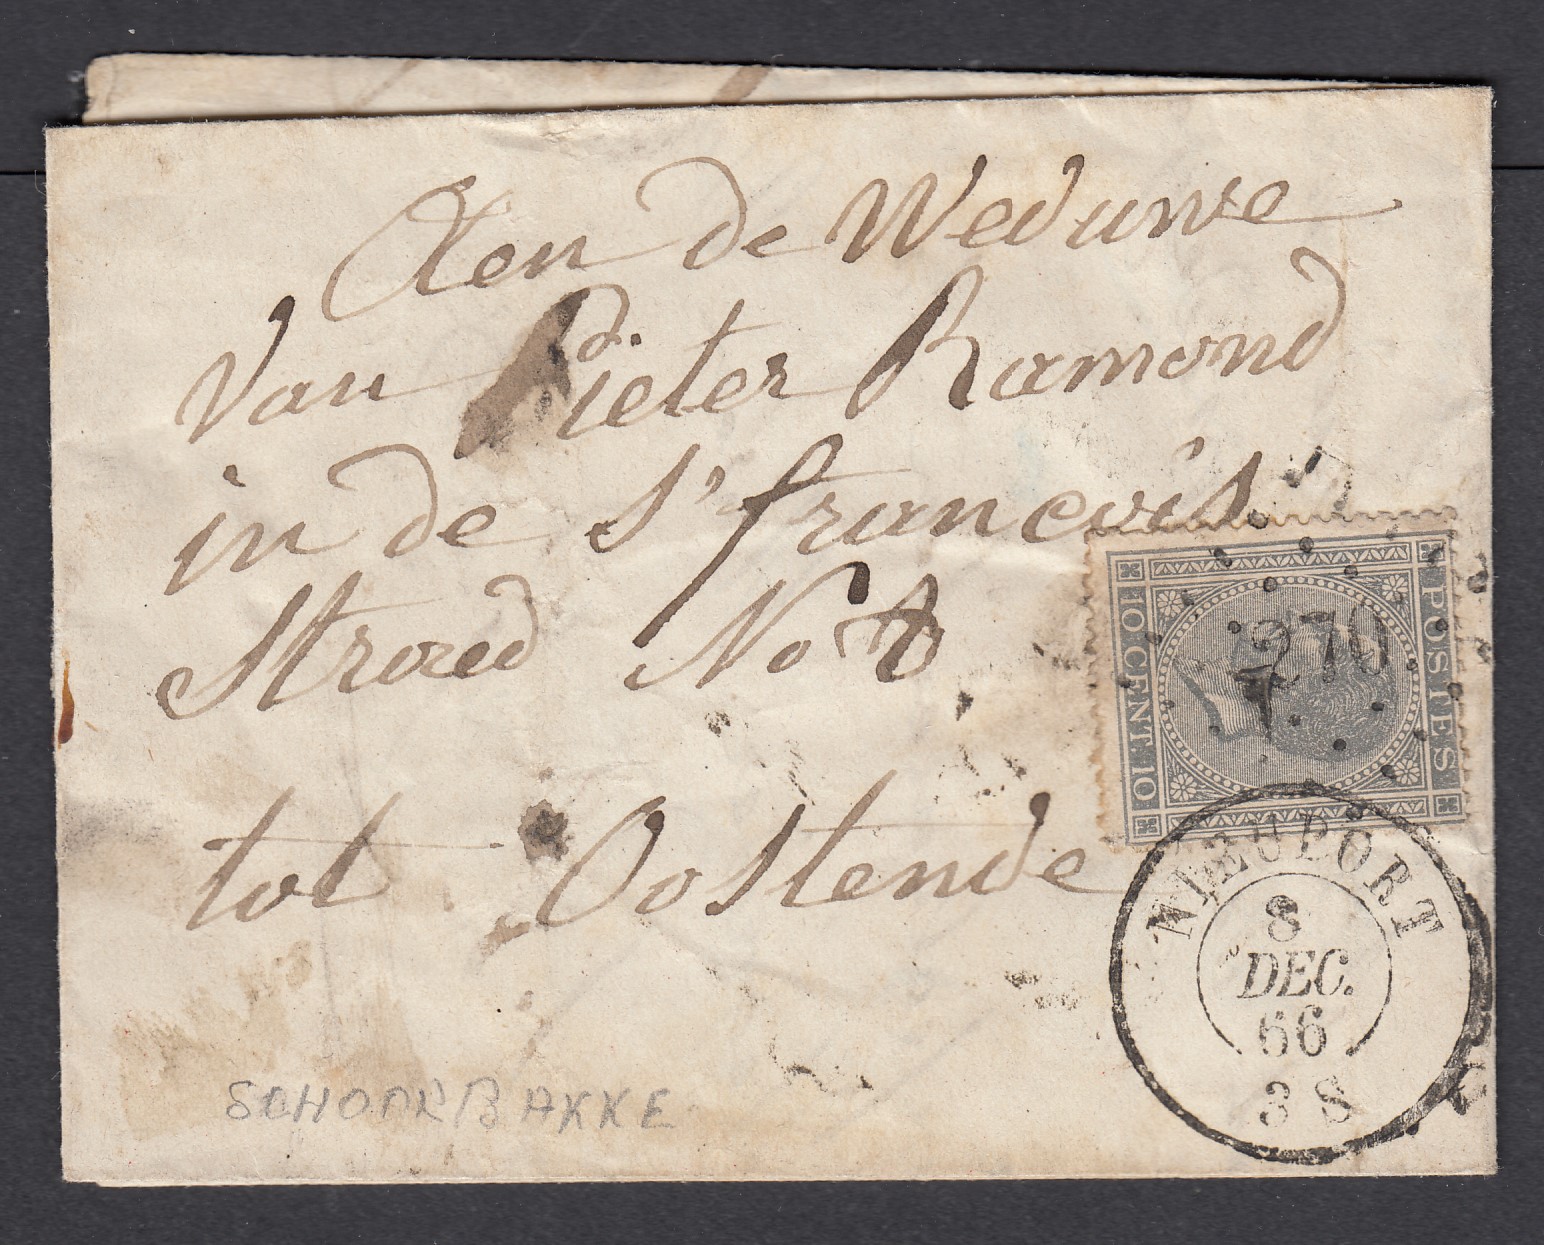 Aen de Weduwe
Van Pieter Ramond
in de St francois
Straed No 8
tot Oostende
POSTES
10 CENT. 10
270
NIEUPORT
8
DEC.
66
3 S
SCHOORBAKKE